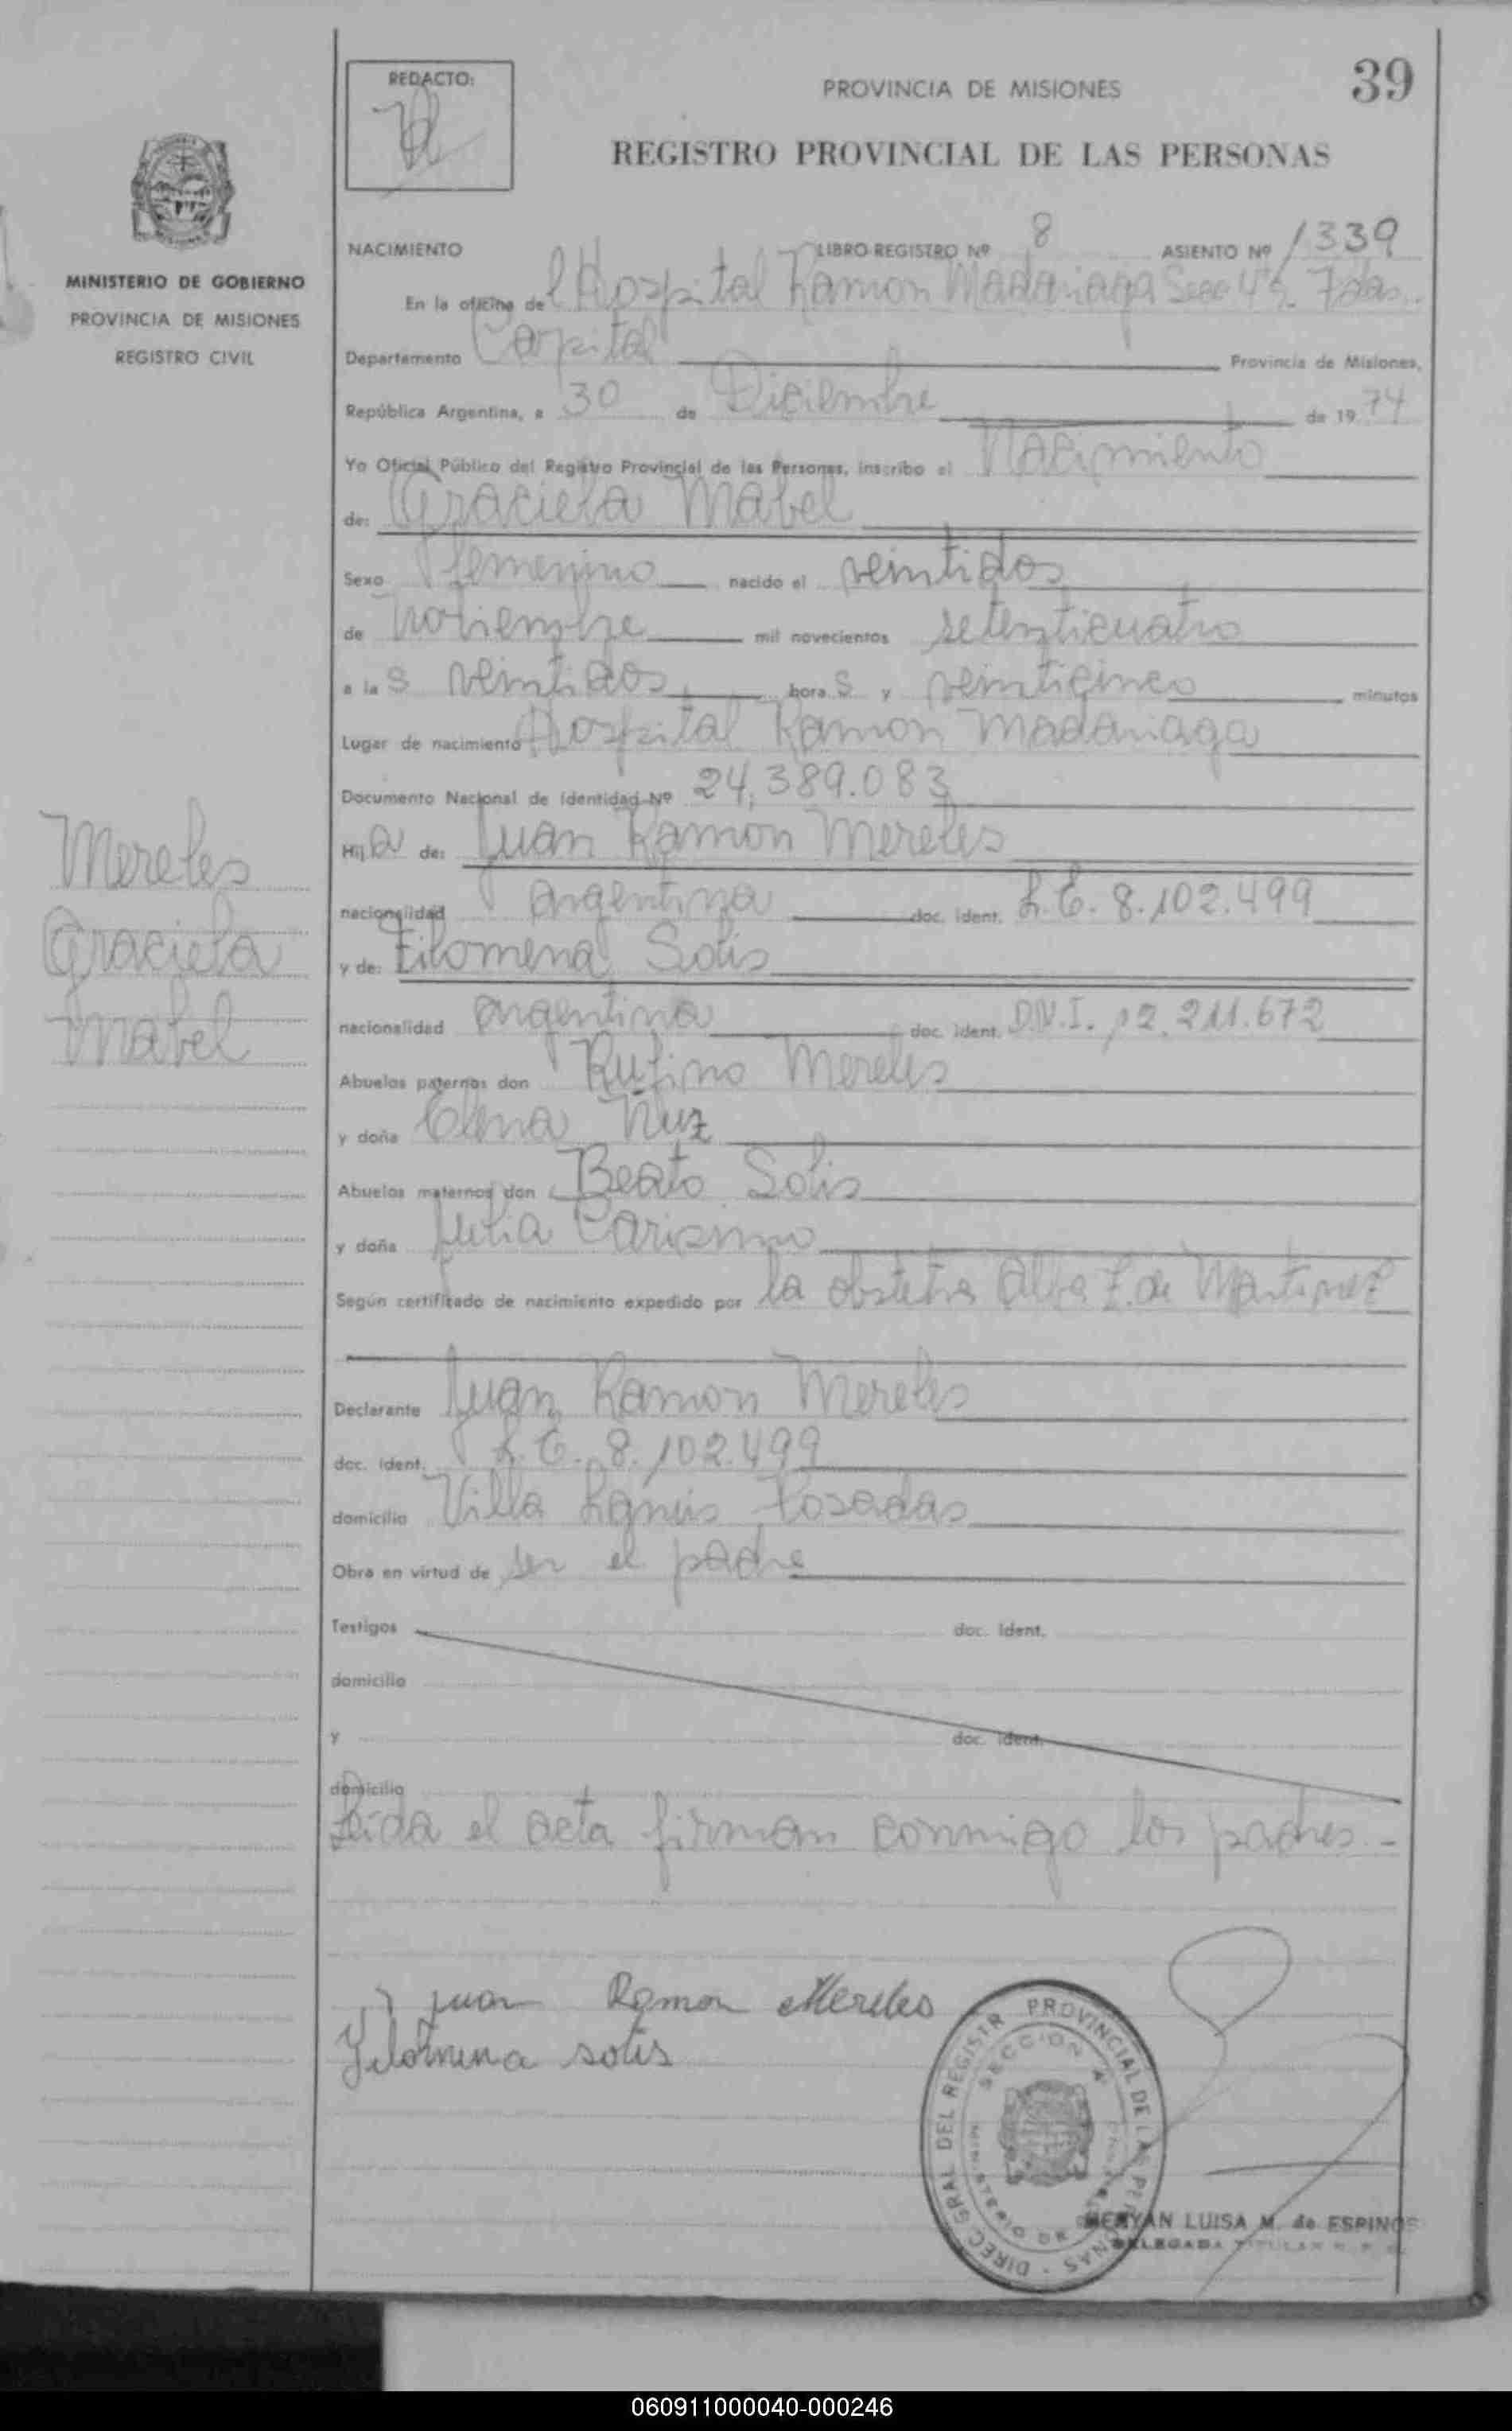 39
REDACTO:
PROVINCIA DE MISIONES
REGISTRO PROVINCIAL DE LAS PERSONAS
MINISTERIO DE GOBIERNO
PROVINCIA DE MISIONES
REGISTRO CIVIL
NACIMIENTO LIBRO REGISTRO Nº 8 ASIENTO Nº 1339
En la oficina del Hospital Ramon Madariaga Secc 4ª. Pdas.
Departamento Capital Provincia de Misiones,
República Argentina, a 30 de Diciembre de 1974
Yo Oficial Público del Registro Provincial de las Personas, inscribo el Nacimiento
de: Graciela Mabel
Sexo femenino nacido el veintidos
de noviembre mil novecientos setenticuatro
a las veintidos horas y veinticinco minutos
Lugar de nacimiento Hospital Ramon Madariaga
Documento Nacional de Identidad Nº 24.389.083
Hija de: Juan Ramon Mereles
nacionalidad argentina doc. ident. L.E. 8.102.499
y de: Filomena Solis
nacionalidad argentina doc. ident. D.N.I. 12.211.672
Abuelos paternos don Rufino Mereles
y doña Elena
Abuelos maternos don Beato Solis
y doña Julia Carismo
Según certificado de nacimiento expedido por la obstetra Alba F. de Martinez
Declarante Juan Ramon Mereles
doc. ident. L.E. 8.102.499
domicilio Villa Lanús Posadas
Obra en virtud de ser el padre
Testigos doc. ident.
domicilio
y doc. ident.
domicilio
Leida el acta firman conmigo los padres.-
Mereles
Graciela
Mabel
Juan Ramon Mereles
Filomena solis
DIREC. GRAL DEL REGISTR PROVINCIAL DE LAS PERSONAS
SECCION 4ª
LUISA M. de ESPINOS
DELEGADA TITULAR
060911000040-000246